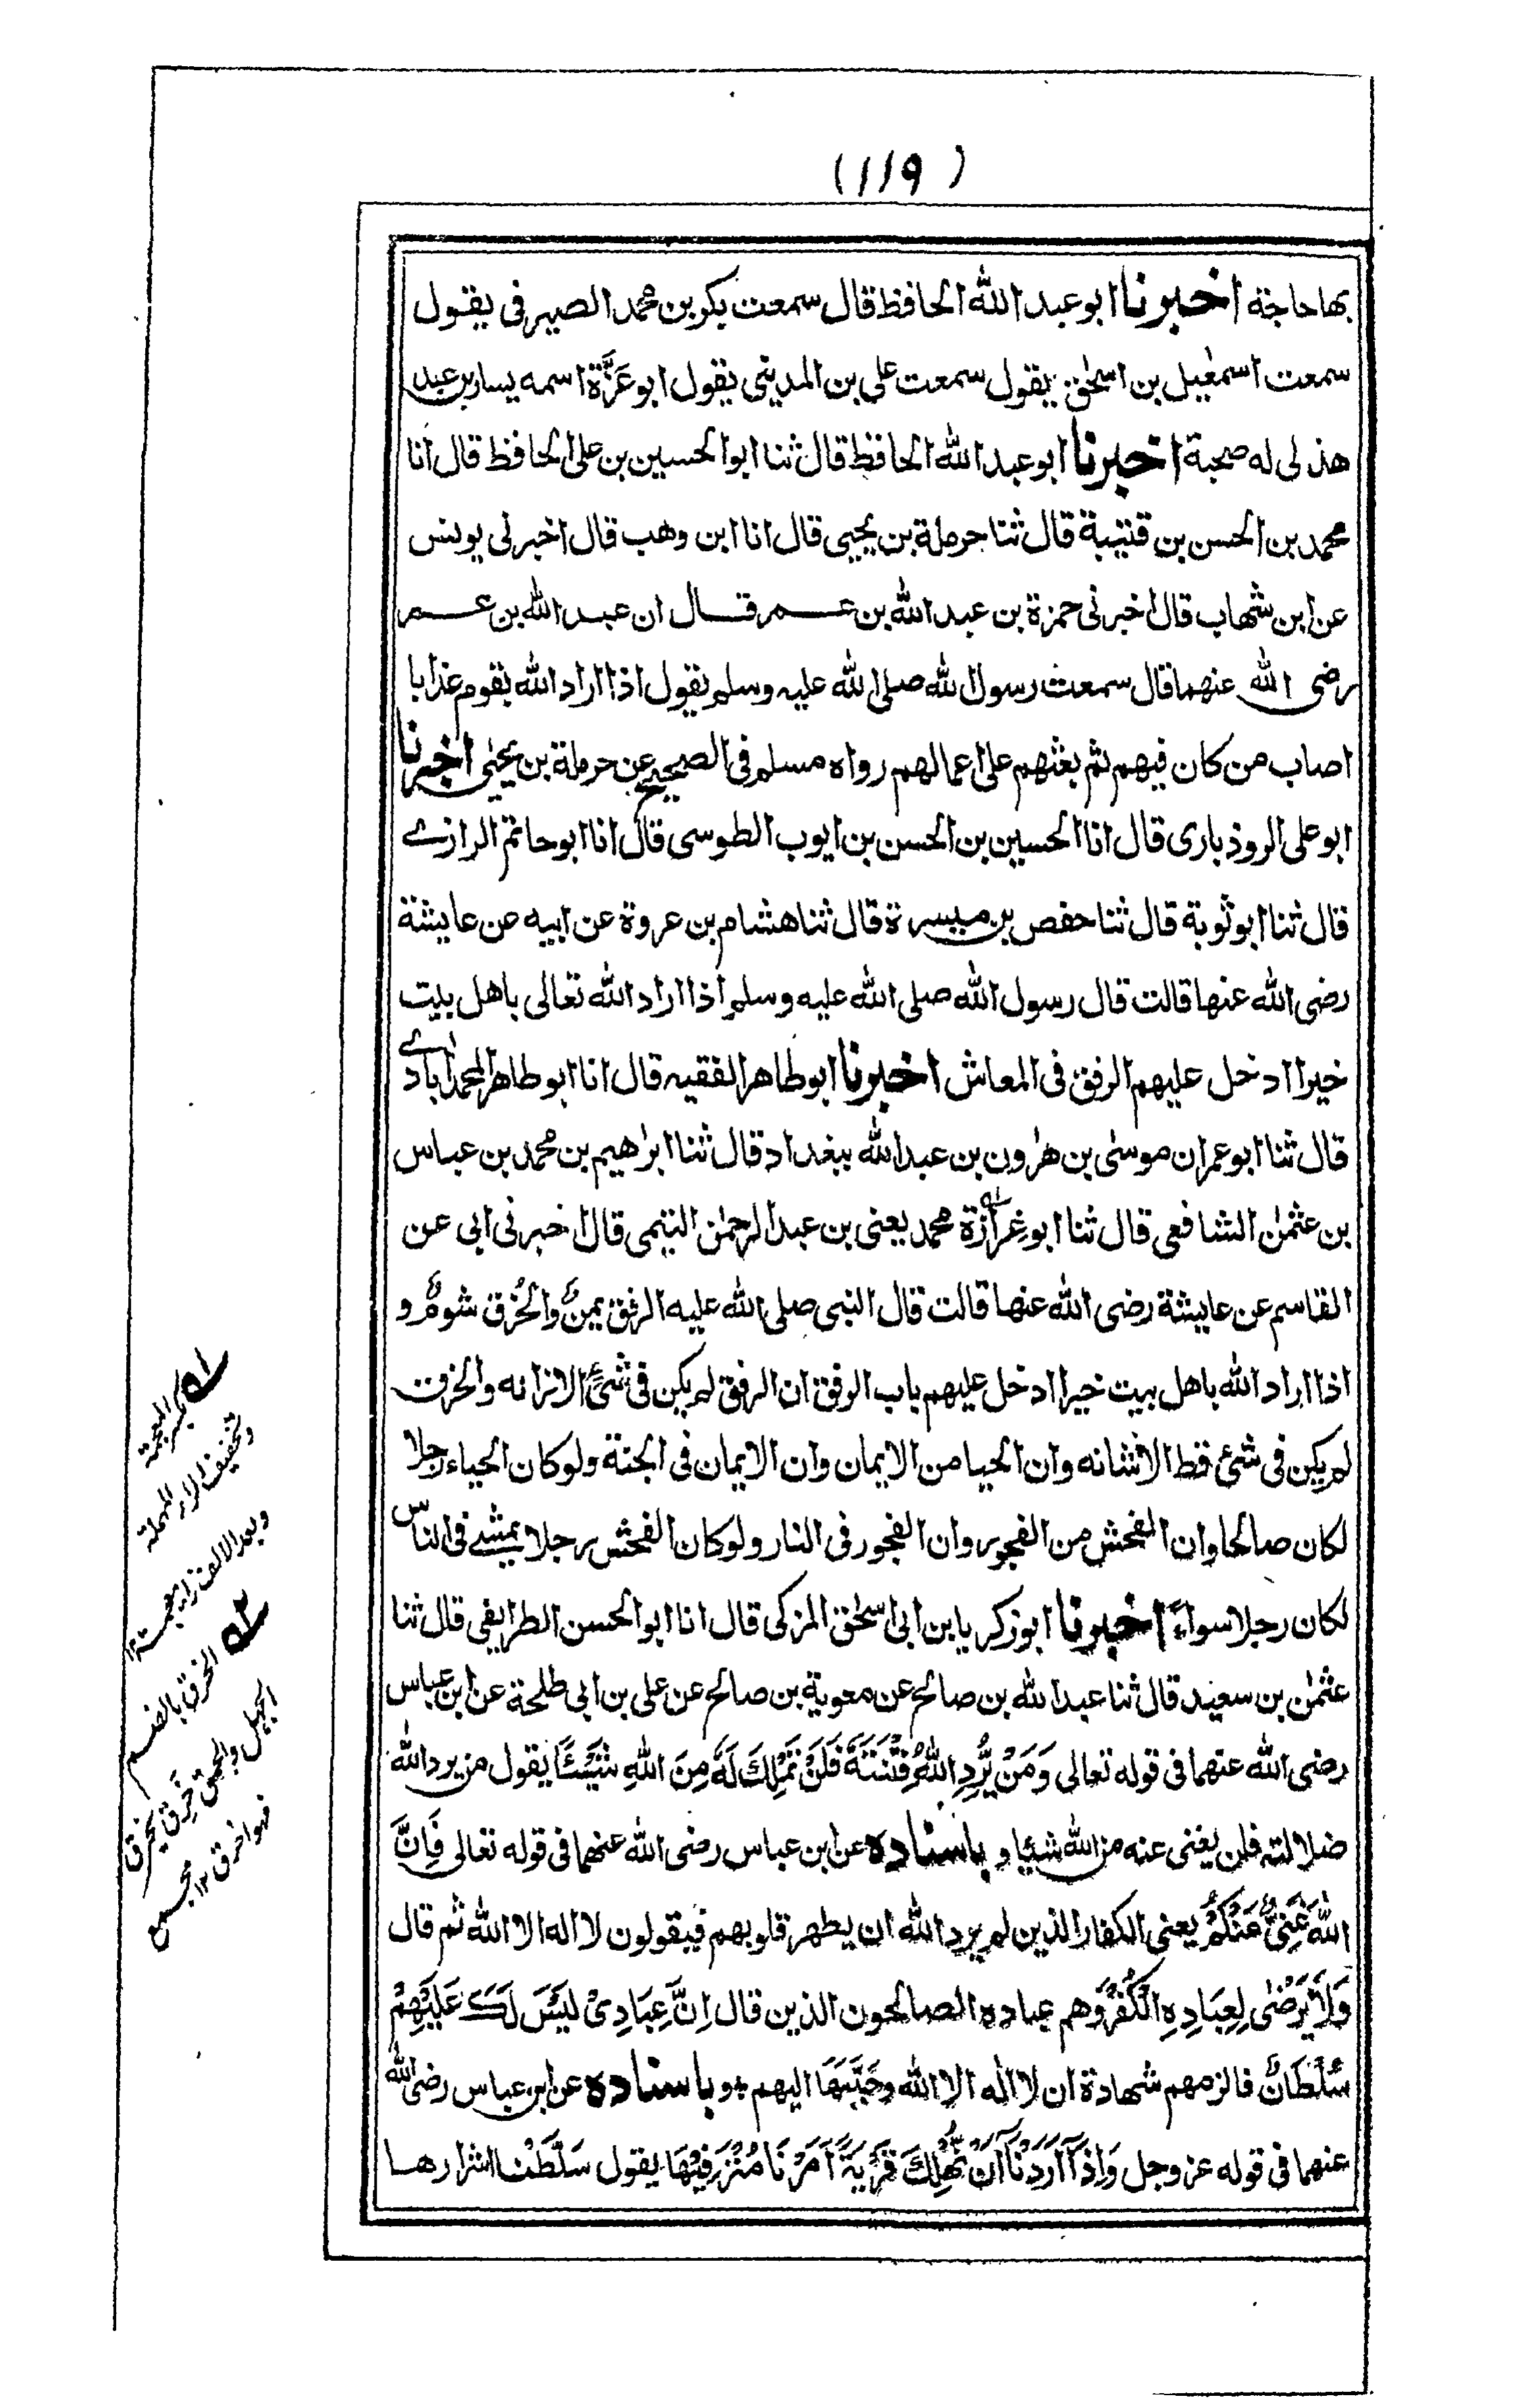 (١١٩)
بها حاجة اخبرنا ابو عبد الله الحافظ قال سمعت بكر بن محمد الصيرفى يقول
سمعت اسمٰعيل بن اسحٰق يقول سمعت على بن المدينى يقول ابو عَزَّة اسمه يسار بن عبد
هذلى له صحبة اخبرنا ابو عبد الله الحافظ قال ثنا ابو الحسين بن على الحافظ قال انا
محمد بن الحسن بن قتيبة قال ثنا حرملة بن يحيى قال انا ابن وهب قال اخبرنى يونس
عن ابن شهاب قال اخبرنى حمزة بن عبد الله بن عمر قال ان عبد الله بن عمر
رضى الله عنهما قال سمعت رسول الله صلى الله عليه وسلم يقول اذا اراد الله بقوم عذابا
اصاب من كان فيهم ثم بعثهم على اعمالهم رواه مسلم فى الصحيح عن حرملة بن يحيٰى اخبرنا
ابو على الروذبارى قال انا الحسين بن الحسن بن ايوب الطوسى قال انا ابو حاتم الرازے
قال ثنا ابو ثوبة قال ثنا حفص بن ميسرة قال ثنا هشام بن عروة عن ابيه عن عايشة
رضى الله عنها قالت قال رسول الله صلى الله عليه وسلم اذا اراد الله تعالى باهل بيت
خيرا ادخل عليهم الرفق فى المعاش اخبرنا ابو طاهر الفقيه قال انا ابو طاهر المحمداٰبادے
قال ثنا ابو عمران موسٰى بن هٰرون بن عبد الله ببغداد قال ثنا ابرٰهيم بن محمد بن عباس
بن عثمٰن الشافعى قال ثنا ابو غِرازة محمد يعنى بن عبد الرحمٰن التيمى قال اخبرنى ابى عن
القاسم عن عايشة رضى الله عنها قالت قال النبى صلى الله عليه الرفق يمنٌ والخُرق شومٌ و
اذا اراد الله باهل بيت خيرا ادخل عليهم باب الرفق ان الرفق لم يكن فى شئ الا زانه والخرق
لم يكن فى شئ قط الا شانه وان الحيا من الايمان وان الايمان فى الجنة ولو كان الحياء رجلا
لكان صالحا وان الفحش من الفجور وان الفجور فى النار ولو كان الفحش رجلا يمشے فى الناس
لكان رجلا سواءً اخبرنا ابو زكريا بن ابى اسحٰق المزكى قال انا ابو الحسن الطرايفى قال ثنا
عثمٰن بن سعيد قال ثنا عبد الله بن صالح عن معوية بن صالح عن على بن ابى طلحة عن ابن عباس
رضى الله عنهما فى قوله تعالى وَمَنْ يُّرِدِ اللّٰهُ فِتْنَتَهٗ فَلَنْ تَمْلِكَ لَهٗ مِنَ اللّٰهِ شَيْئًا يقول من يرد الله
ضلالته فلن يغنى عنه من الله شيئا و باسناده عن ابن عباس رضى الله عنهما فى قوله تعالى فَاِنَّ
اللّٰهَ غَنِىٌّ عَنْكُمْ يعنى الكفار الذين لم يرد الله ان يطهر قلوبهم فيقولون لا اله الا الله ثم قال
وَلَا يَرْضٰى لِعِبَادِهِ الْكُفْرَ وهم عباده الصالحون الذين قال اِنَّ عِبَادِىْ لَيْسَ لَكَ عَلَيْهِمْ
سُلْطَانٌ فالزمهم شهادة ان لا اله الا الله وحَبَّبَهَا اليهم و باسناده عن ابن عباس رضى الله
عنهما فى قوله عز وجل وَاِذَآ اَرَدْنَآ اَنْ نُّهْلِكَ قَرْيَةً اَمَرْنَا مُتْرَفِيْهَا يقول سَلَّطْنا اشرارها
له بكسر المعجمة
وتخفيف الراء المهملة
وبعد الالف زاء معجمة ١٢
٢ه الخرق بالضم
الجهل والحمق خَرِق يخرق
فهو اخرق ١٢ مجمع